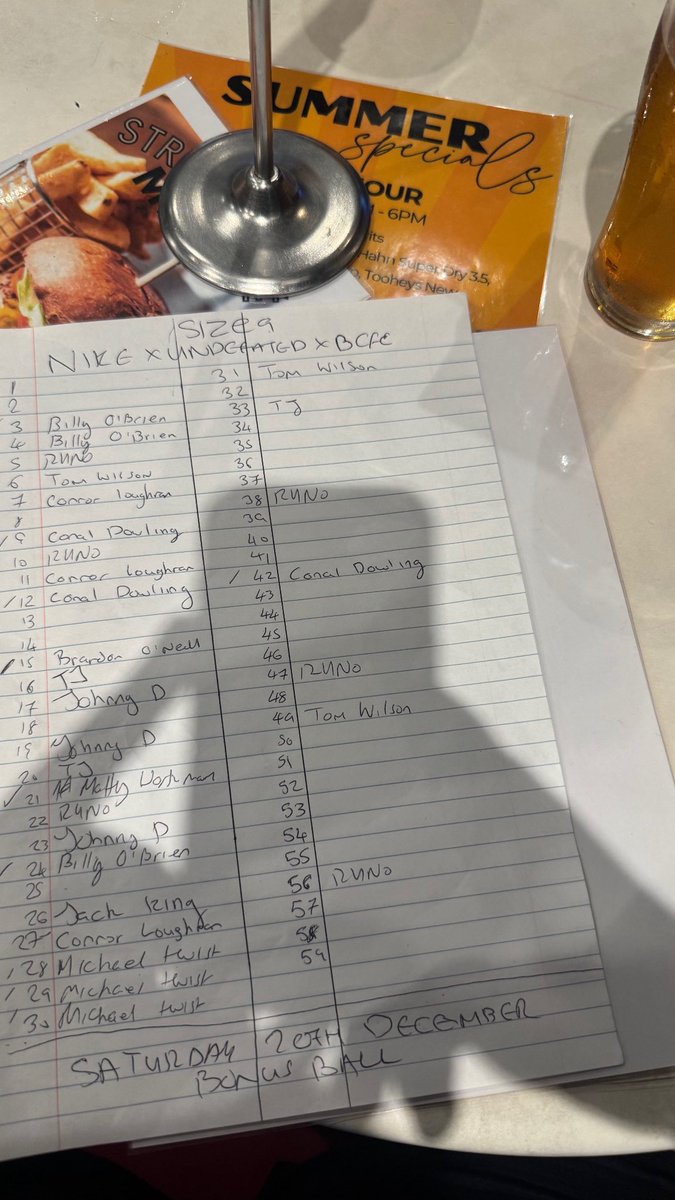 SUMMER
specials
STR
OUR
- 6PM
Hahn Super Dry 3.5,
Tooheys New
SIZE 9
NIKE x UNDEFEATED x BCFC
1
2
3 Billy O'Brien
4 Billy O'Brien
5 RUNO
6 Tom Wilson
7 Connor Loughran
8
/ 9 Conal Dowling
10 RUNO
11 Connor Loughran
/ 12 Conal Dowling
13
14
/ 15 Brandon O'Neill
16 TJ
17 Johnny D
18
19 Johnny D
20 TJ
✓ 21 Matty Workman
22 RUNO
23 Johnny D
/ 24 Billy O'Brien
25
26 Jack King
27 Connor Loughran
/ 28 Michael twist
/ 29 Michael twist
/ 30 Michael twist
31 Tom Wilson
32
33 TJ
34
35
36
37
38 RUNO
39
40
41
/ 42 Conal Dowling
43
44
45
46
47 RUNO
48
49 Tom Wilson
50
51
52
53
54
55
56 RUNO
57
58
59
SATURDAY 20TH DECEMBER
BONUS BALL